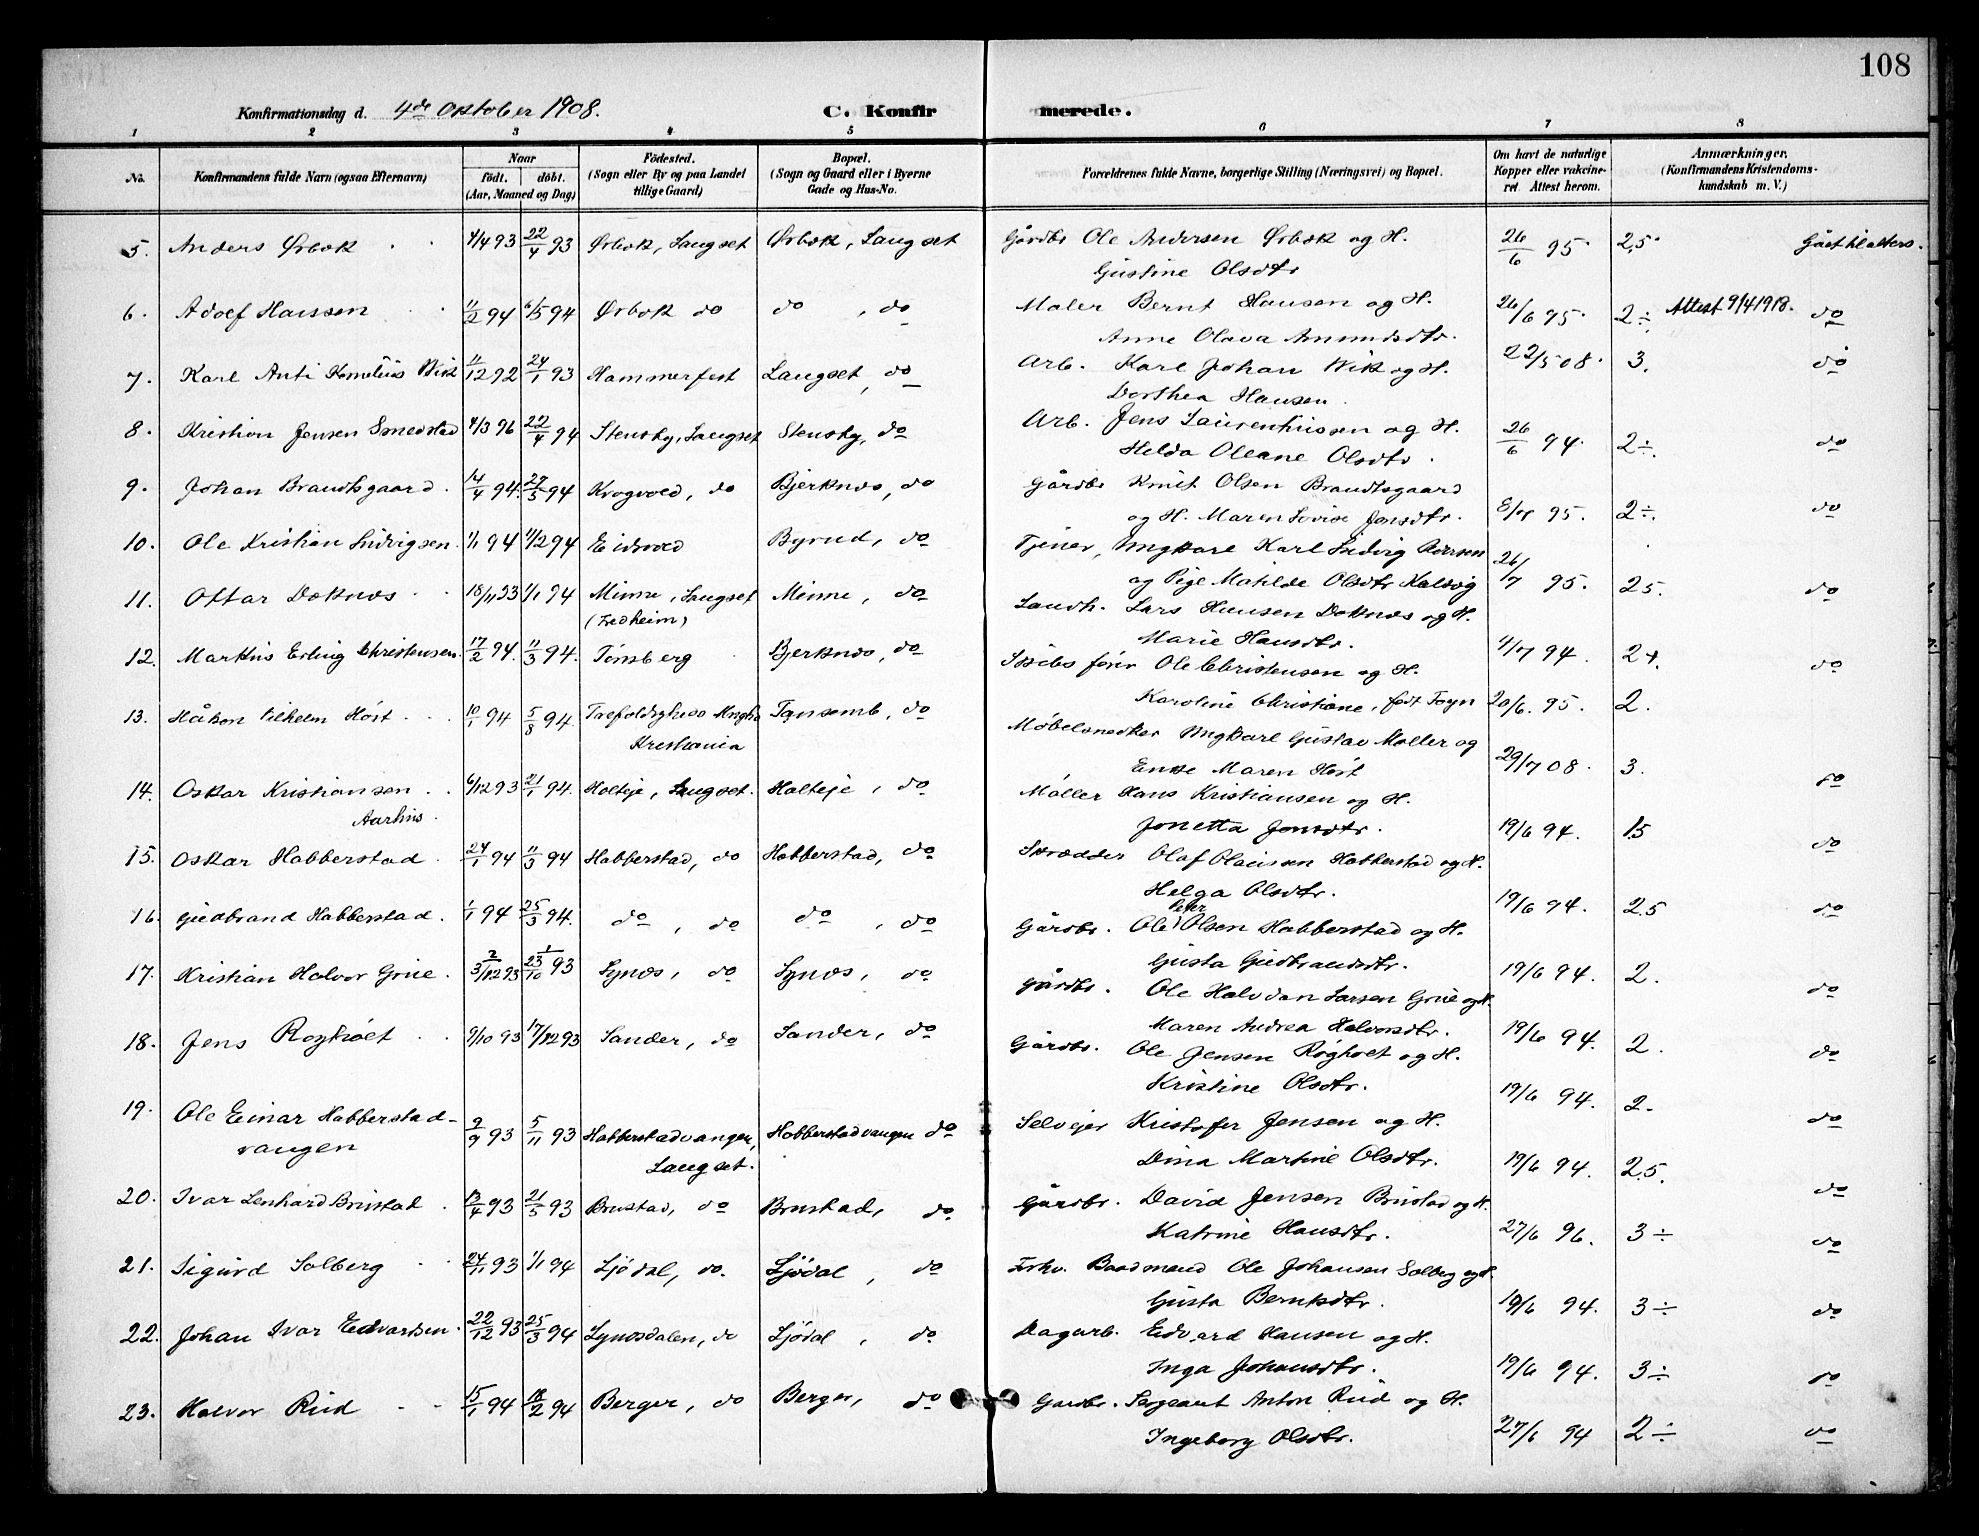 108
Konfirmationsdag d. 4de Oktober 1908. C. Konfirmerede.
1 2 3 4 5 6 7 8
No. Konfirmandens fulde Navn (ogsaa Efternavn) Naar födt. döbt. (Aar, Maaned og Dag) Födested. (Sogn eller By og paa Landet tillige Gaard) Bopæl. (Sogn og Gaard eller i Byerne Gade og Hus-No. Forældrenes fulde Navne, borgerlige Stilling (Næringsvei) og Bopæl. Om havt de naturlige Kopper eller vakcineret. Attest herom. Anmærkninger. (Konfirmandens Kristendomskundskab m. V.)
5. Anders Ørbæk 4/4 93 22/4 93 Ørbæk, Laugset Ørbæk, Laugset Gårdbr Ole Andersen Ørbæk og H. 26/6 95 2,5 Gået til alters.
Gustine Olsdtr
6. Adolf Hansen 11/2 94 6/5 94 Ørbæk do do, do Maler Bernt Hansen og H. 26/6 95 2÷ Attest 9/4 1918. do
Anne Olava Amundsdtr.
7. Karl Anti Kornelius Wik 11/12 92 24/1 93 Hammerfest Laugset, do Arb. Karl Johan Wik og H. 22/5 08. 3. do
Dorthea Hansen.
8. Kristian Jensen Smedstad 4/3 96 22/4 94 Stensby, Laugset Stensby, do Arb. Jens Laurenthussen og H. 26/6 94. 2÷. do
Helda Oleane Olsdtr.
9. Johan Brandtsgaard. 14/4 94. 27/5 94 Krogvold, do Bjerknæs, do Gårdbr Knut Olsen Brandtsgaard
og H. Maren Lovise Jensdtr. 8/7 95. 2÷. do
10. Ole Kristian Ludvigsen. 1/1 94 11/2 94 Eidsvold Byrud, do Tjener, Ungkarl Karl Ludvig
og Pige Matilde Olsdtr Kalvig 26/7 95. 25. do
11. Ottar Doknæs 18/11 93 1/1 94 Minne, Laugset Minne, do Landh. Lars Hansen Doknæs og H.
(Fredheim) Marie Hansdtr. 11/7 94. 2+. do
12. Markus Erling Christensen. 17/2 94. 11/3 94. Tönsberg Bjerknæs, do Skibsfører Ole Christensen og H.
Karoline Christiane, födt Fogn 20/6. 95. 2.
13. Håkon Vilhelm Höst 10/1 94 5/8 94. Trefoldigheds Mgh. Tønsemb, do Møbelsnedker Ungkarl Gustav Møller og
Kristiania Enke Maren Höst 29/7 08. 3. do
14. Oskar Kristiansen 6/12 93 21/1 94. Holteje, Laugset. Holteje, do Møller Hans Kristiansen og H.
Aarhus. Jonetta Jonsdtr. 19/6 94. 15 do
15. Oskar Habberstad. 24/1 94 11/3 94 Habberstad, do Habberstad, do Skrædder Olaf Olausen Habberstad og H.
Helga Olsdtr. 19/6 94. 2.5 do
16. Gudbrand Habberstad. 1/1 94 25/3 94. do, do do, do Gårdbr. Ole Peter Olsen Habberstad og H.
Gusta Gudbrandsdtr. 19/6 94. 2. do
17. Kristian Halvor Grue. 3/12 93 23/10 93 Synæs, do Synæs, do Gårdbr. Ole Halvdan Larsen Grue og H.
Maren Andrea Halvorsdtr. 19/6 94. 2. do
18. Jens Røgholt 9/10 93 17/12 93 Sander, do Sander, do Gårdbr. Ole Jensen Røgholt og H.
Kristine Olsdtr. 19/6 94. 2. do
19. Ole Einar Habberstad- 2/9 93 5/11 93 Habberstadvangen, Habberstadvangen do Selvejer Kristofer Jensen og H.
vangen Laugset. Dina Martine Olsdtr. 19/6 94. 2.5. do
20. Ivar Lenhard Brustad. 13/4 93 21/5 93 Brustad, do Brustad, do Gårdbr. David Jensen Brustad og H.
Katrine Hansdtr. 27/6 96. 3÷ do
21. Sigurd Solberg 24/11 93 1/1 94 Ljödal, do. Ljödal, do Forhv. Baadsmand Ole Johansen Solberg og H.
Gusta Berntsdtr. 19/6 94. 3÷ do
22. Johan Ivar Edvardsen. 22/12 93 25/3 94 Synæsdalen, do Ljödal, do Dagarb. Edvard Hansen og H.
Inga Johansdtr. 19/6 94. 3÷ do
23. Halvor Rud 15/1 94 18/2 94 Berger, do Berger, do Gardbr. Sergeant Anton Rud og H.
Ingeborg Olsdtr. 27/6 94 2÷ do